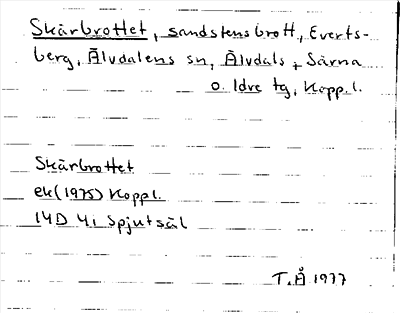 Skärbrottet, sandstensbrott, Everts-
berg, Älvdalens sn, Älvdals, Särna
o. Idre tg, Kopp.l.
Skärbrottet
ek(1975) Koppl.
14D 4i Spjutsäl
T.Å 1977